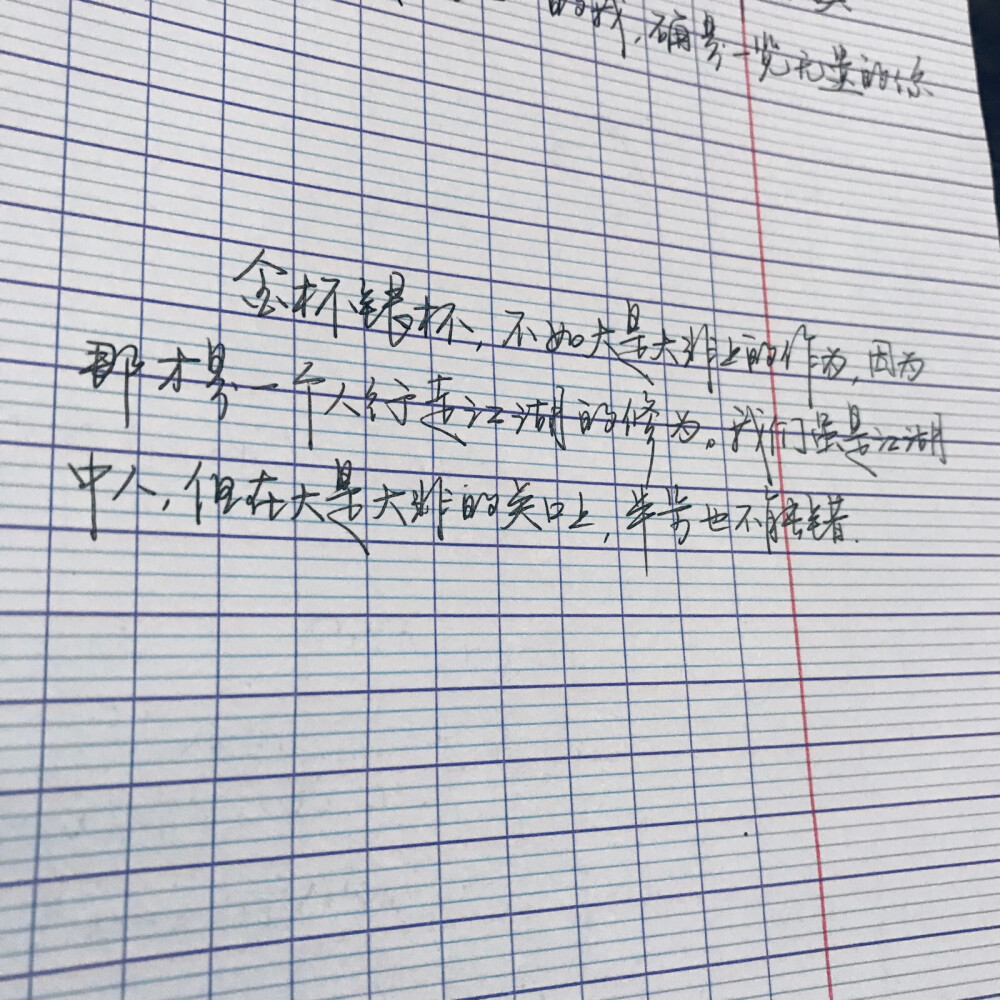 的我，确是一览无遗的你
金杯银杯，不如大是大非上的作为，因为
那才是一个人行走江湖的修为。我们虽是江湖
中人，但在大是大非的关口上，半步也不能错．